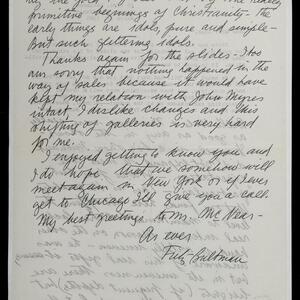 primitive beginnings of Christianity - the
early things are idols pure and simple -
But such glittering idols.
Thanks again for the slides - I too
am sorry that nothing happened in the
way of sales because it would have
kept my relation with John Myers
intact. I dislike changes and this
shifting of galleries is very hard
for me.
I enjoyed getting to know you and
I do hope that we somehow will
meet again in New York or if I ever
get to Chicago I'll give you a call.
My best greetings to Mr. McNear -
As ever
Fritz Bultman